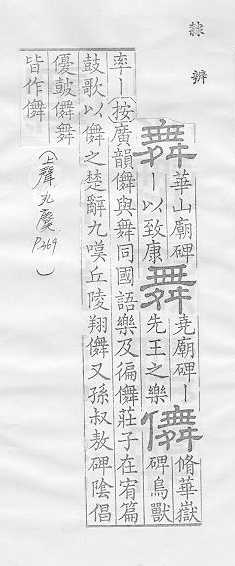 隸辨
舞華山廟碑
丨以致康
舞堯廟碑丨
先王之樂
儛脩華嶽
碑鳥獸
率丨按廣韻儛與舞同國語樂及徧儛莊子在宥篇
鼓歌以儛之楚辭九嘆丘陵翔儛又孫叔敖碑陰倡
優鼓儛舞
皆作儛
(上聲九麌P369)